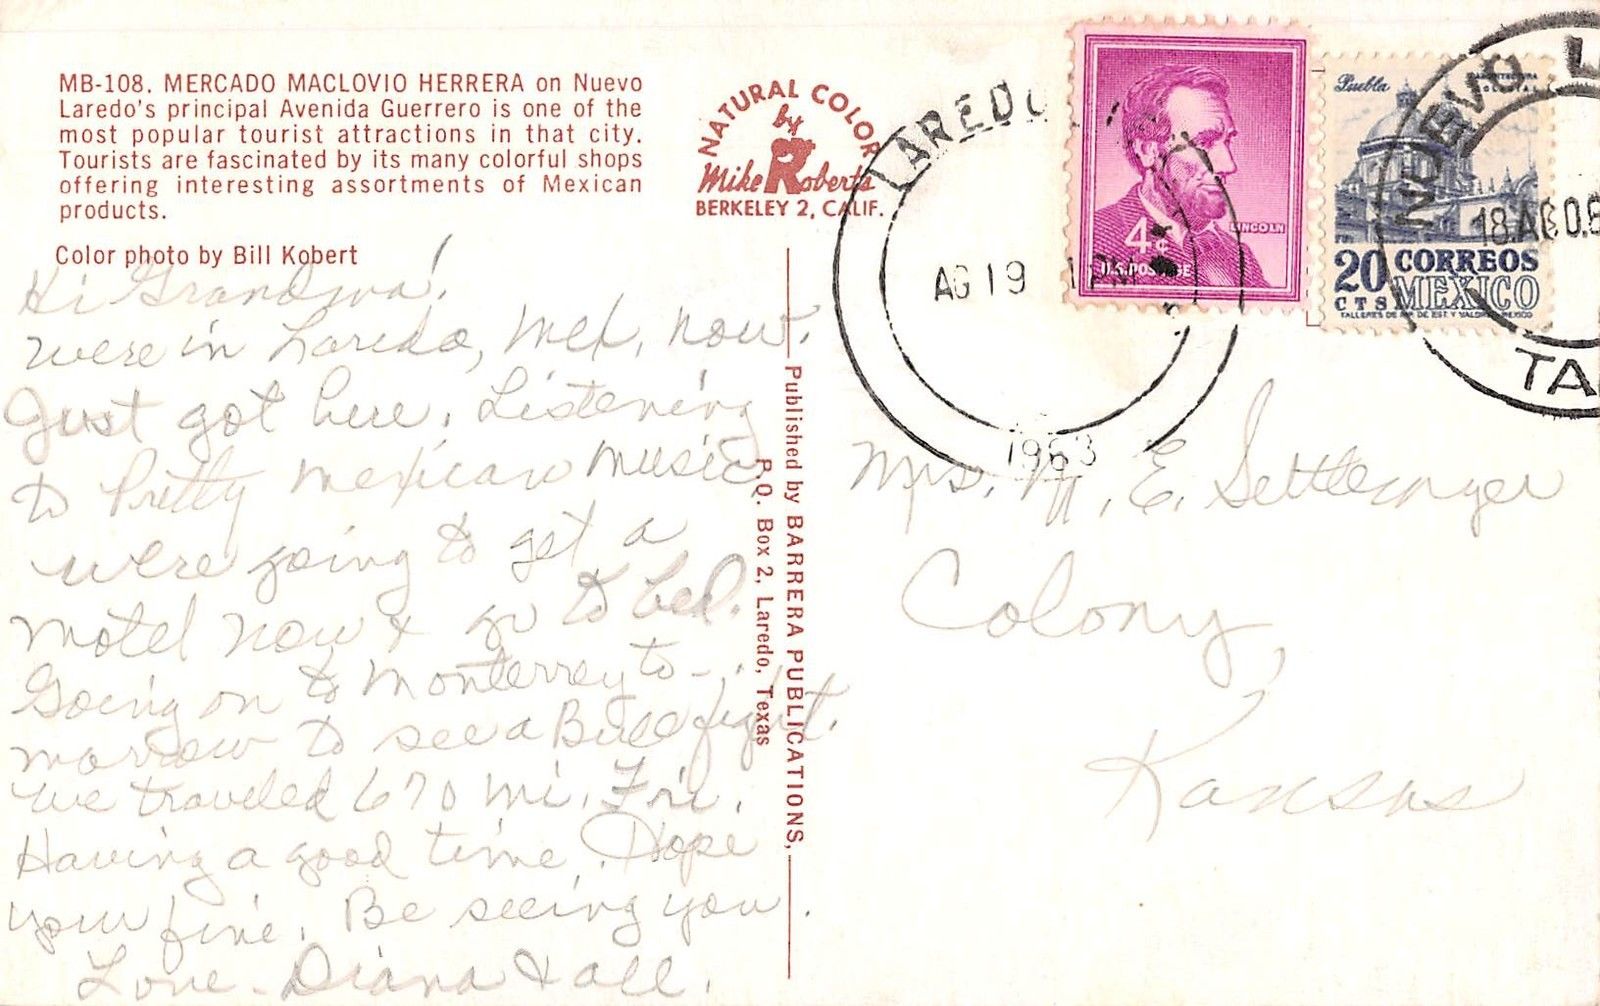 MB-108. MERCADO MACLOVIO HERRERA on Nuevo
Laredo's principal Avenida Guerrero is one of the
most popular tourist attractions in that city.
Tourists are fascinated by its many colorful shops
offering interesting assortments of Mexican
products.
Color photo by Bill Kobert
NATURAL COLOR
by
Mike Roberts
BERKELEY 2, CALIF.
Hi Grandma!
were in Laredo, Mex, now.
Just got here. Listening
to Pretty mexican music
were going to get a
motel now & go to bed.
Going on to Monterrey to-
morrow to see a Bull fight.
we traveled 670 mi. Fri.
Having a good time. Hope
your fine. Be seeing you.
Love - Diana & all.
Published by BARRERA PUBLICATIONS,
P.O. Box 2, Laredo, Texas
LAREDO
AG 19
1 PM
1963
4¢
LINCOLN
U.S. POSTAGE
Puebla
ARQUITECTURA
COLONIAL
20 CORREOS
CTS MEXICO
TALLERES DE IMP. DE EST. Y VALORES-MEXICO
NUEVO L
18 AGO.6
TA
Mrs. M. E. Settlemyer
Colony,
Kansas